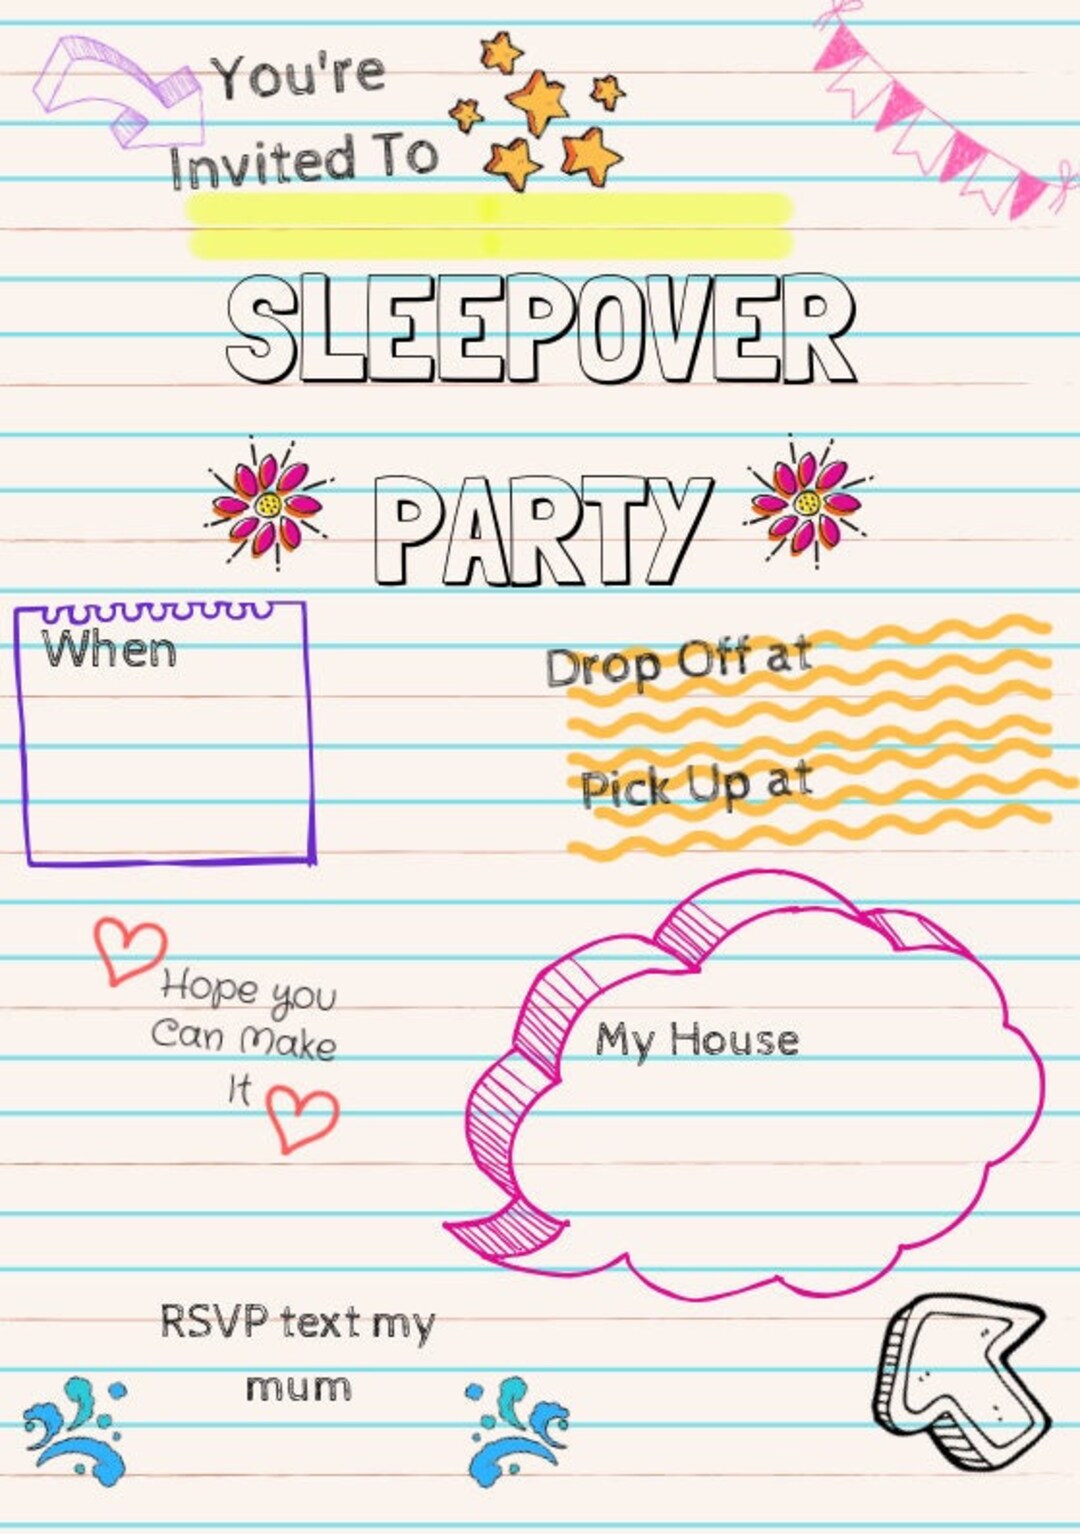 You're
Invited To
SLEEPOVER
PARTY
When
Drop Off at
Pick Up at
Hope you
Can Make
It
My House
RSVP text my
mum